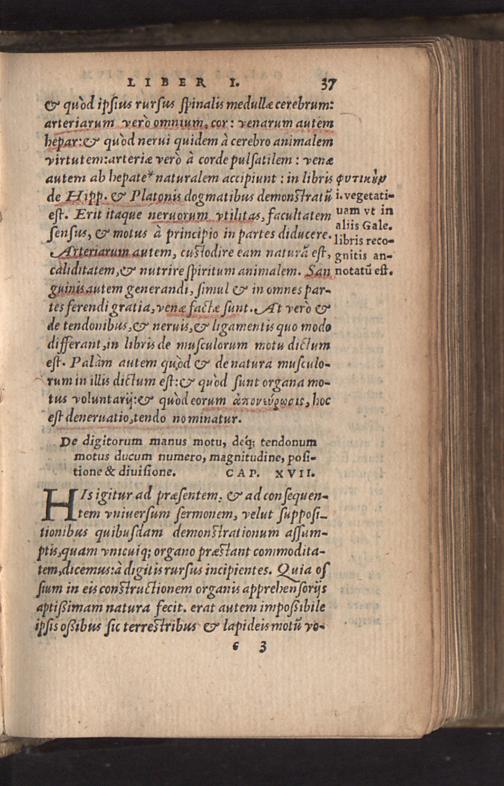 LIBER I. 37
& quòd ipsius rursus spinalis medullæ cerebrum:
arteriarum verò omnium, cor: venarum autem
hepar: & quòd nerui quidem à cerebro animalem
virtutem: arteriæ verò à corde pulsatilem: venæ
autem ab hepate* naturalem accipiunt: in libris
de Hipp. & Platonis dogmatibus demonstratũ
est. Erit itaque neruorum vtilitas, facultatem
sensus, & motus à principio in partes diducere.
Arteriarum autem, custodire eam naturã est,
caliditatem, & nutrire spiritum animalem. San
guinis autem generandi, simul & in omnes par-
tes ferendi gratia, venæ factæ sunt. At verò &
de tendonibus, & neruis, & ligamentis quo modo
differant, in libris de musculorum motu dictum
est. Palàm autem quòd & de natura musculo-
rum in illis dictum est: & quòd sunt organa mo-
tus voluntarij: & quòd eorum ἀπονεύρωσις, hoc
est deneruatio, tendo nominatur.
φυτικὴν
i. vegetati-
uam vt in
aliis Gale.
libris reco-
gnitis an-
notatũ est.
De digitorum manus motu, déq; tendonum
motus ducum numero, magnitudine, posi-
tione & diuisione. CAP. XVII.
HIs igitur ad præsentem, & ad consequen-
tem vniuersum sermonem, velut supposi-
tionibus quibusdam demonstrationum assum-
ptis, quam vnicuiq; organo præstant commodita-
tem, dicemus: à digitis rursus incipientes. Quia os
sium in eis constructionem organis apprehensorijs
aptissimam natura fecit. erat autem impossibile
ipsis ossibus sic terrestribus & lapideis motũ vo-
c 3